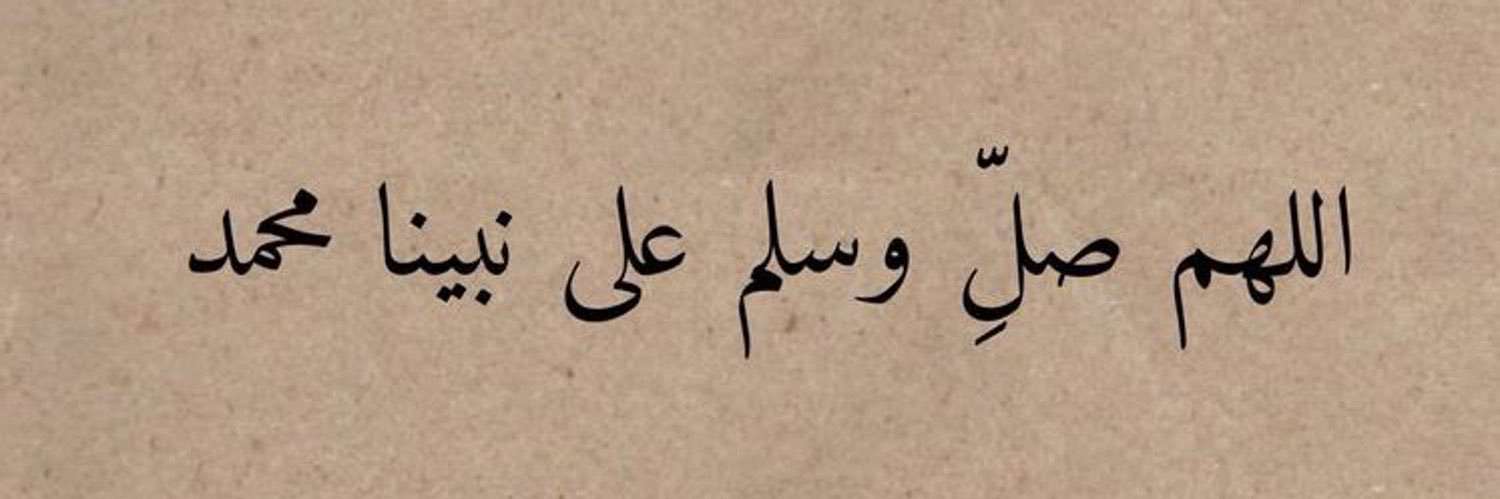 اللهم صلِّ وسلم على نبينا محمد